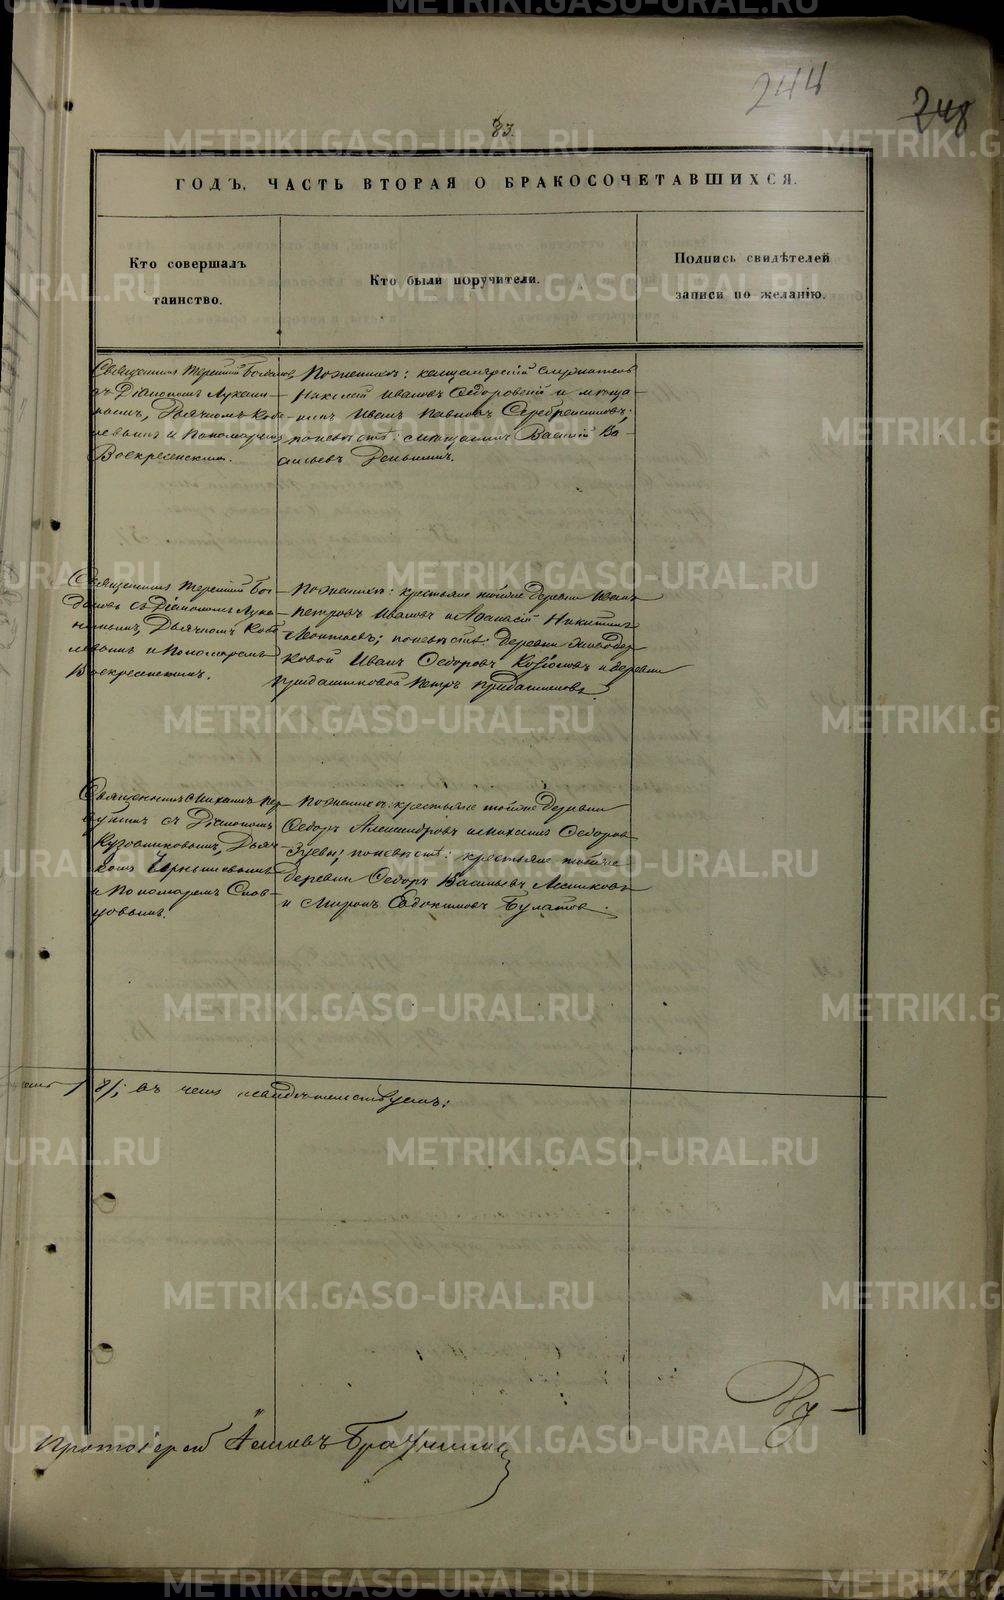 244
248
83.
ГОДЪ, ЧАСТЬ ВТОРАЯ О БРАКОСОЧЕТАВШИХСЯ.
Кто совершалъ
таинство.
Кто были поручители.
Подпись свидѣтелей
записи по желанію.
Священникъ Терентій
съ Діакономъ Лукани-
нымъ, Дьячкомъ Кобе-
левымъ и Пономаремъ
Воскресенскимъ.
По женихѣ: канцелярскій служитель
Николай Ивановъ Ѳедоровскій и мѣща-
нинъ Иванъ Павловъ Серебренниковъ;
по невѣстѣ: мѣщанинъ Василій Ва-
сильевъ
Священникъ Терентій Бог-
дановъ съ Діакономъ Лука-
нинымъ, Дьячкомъ Кобе-
левымъ и Пономаремъ
Воскресенскимъ.
По женихѣ: крестьяне тойже деревни Иванъ
Петровъ Ивановъ и Афанасій Никитинъ
Леонтьевъ; по невѣстѣ: деревни
Иванъ Ѳедоровъ Козловъ и деревни
Придашниковой Петръ Придашниковъ.
Священникъ Михаилъ Пер-
вушинъ съ Діакономъ
Кузовниковымъ, Дьяч-
комъ Чернышевымъ
и Пономаремъ Слов-
цовымъ.
По женихѣ: крестьяне тойже деревни
Ѳедоръ Александровъ и Михаилъ Ѳедоровъ
Зуевы; по невѣстѣ: крестьяне тойже
деревни Ѳедоръ Васильевъ
и Миронъ Евдокимовъ Булатовъ.
въ чемъ свидѣтельствуемъ:
Протоіерей Іаковъ